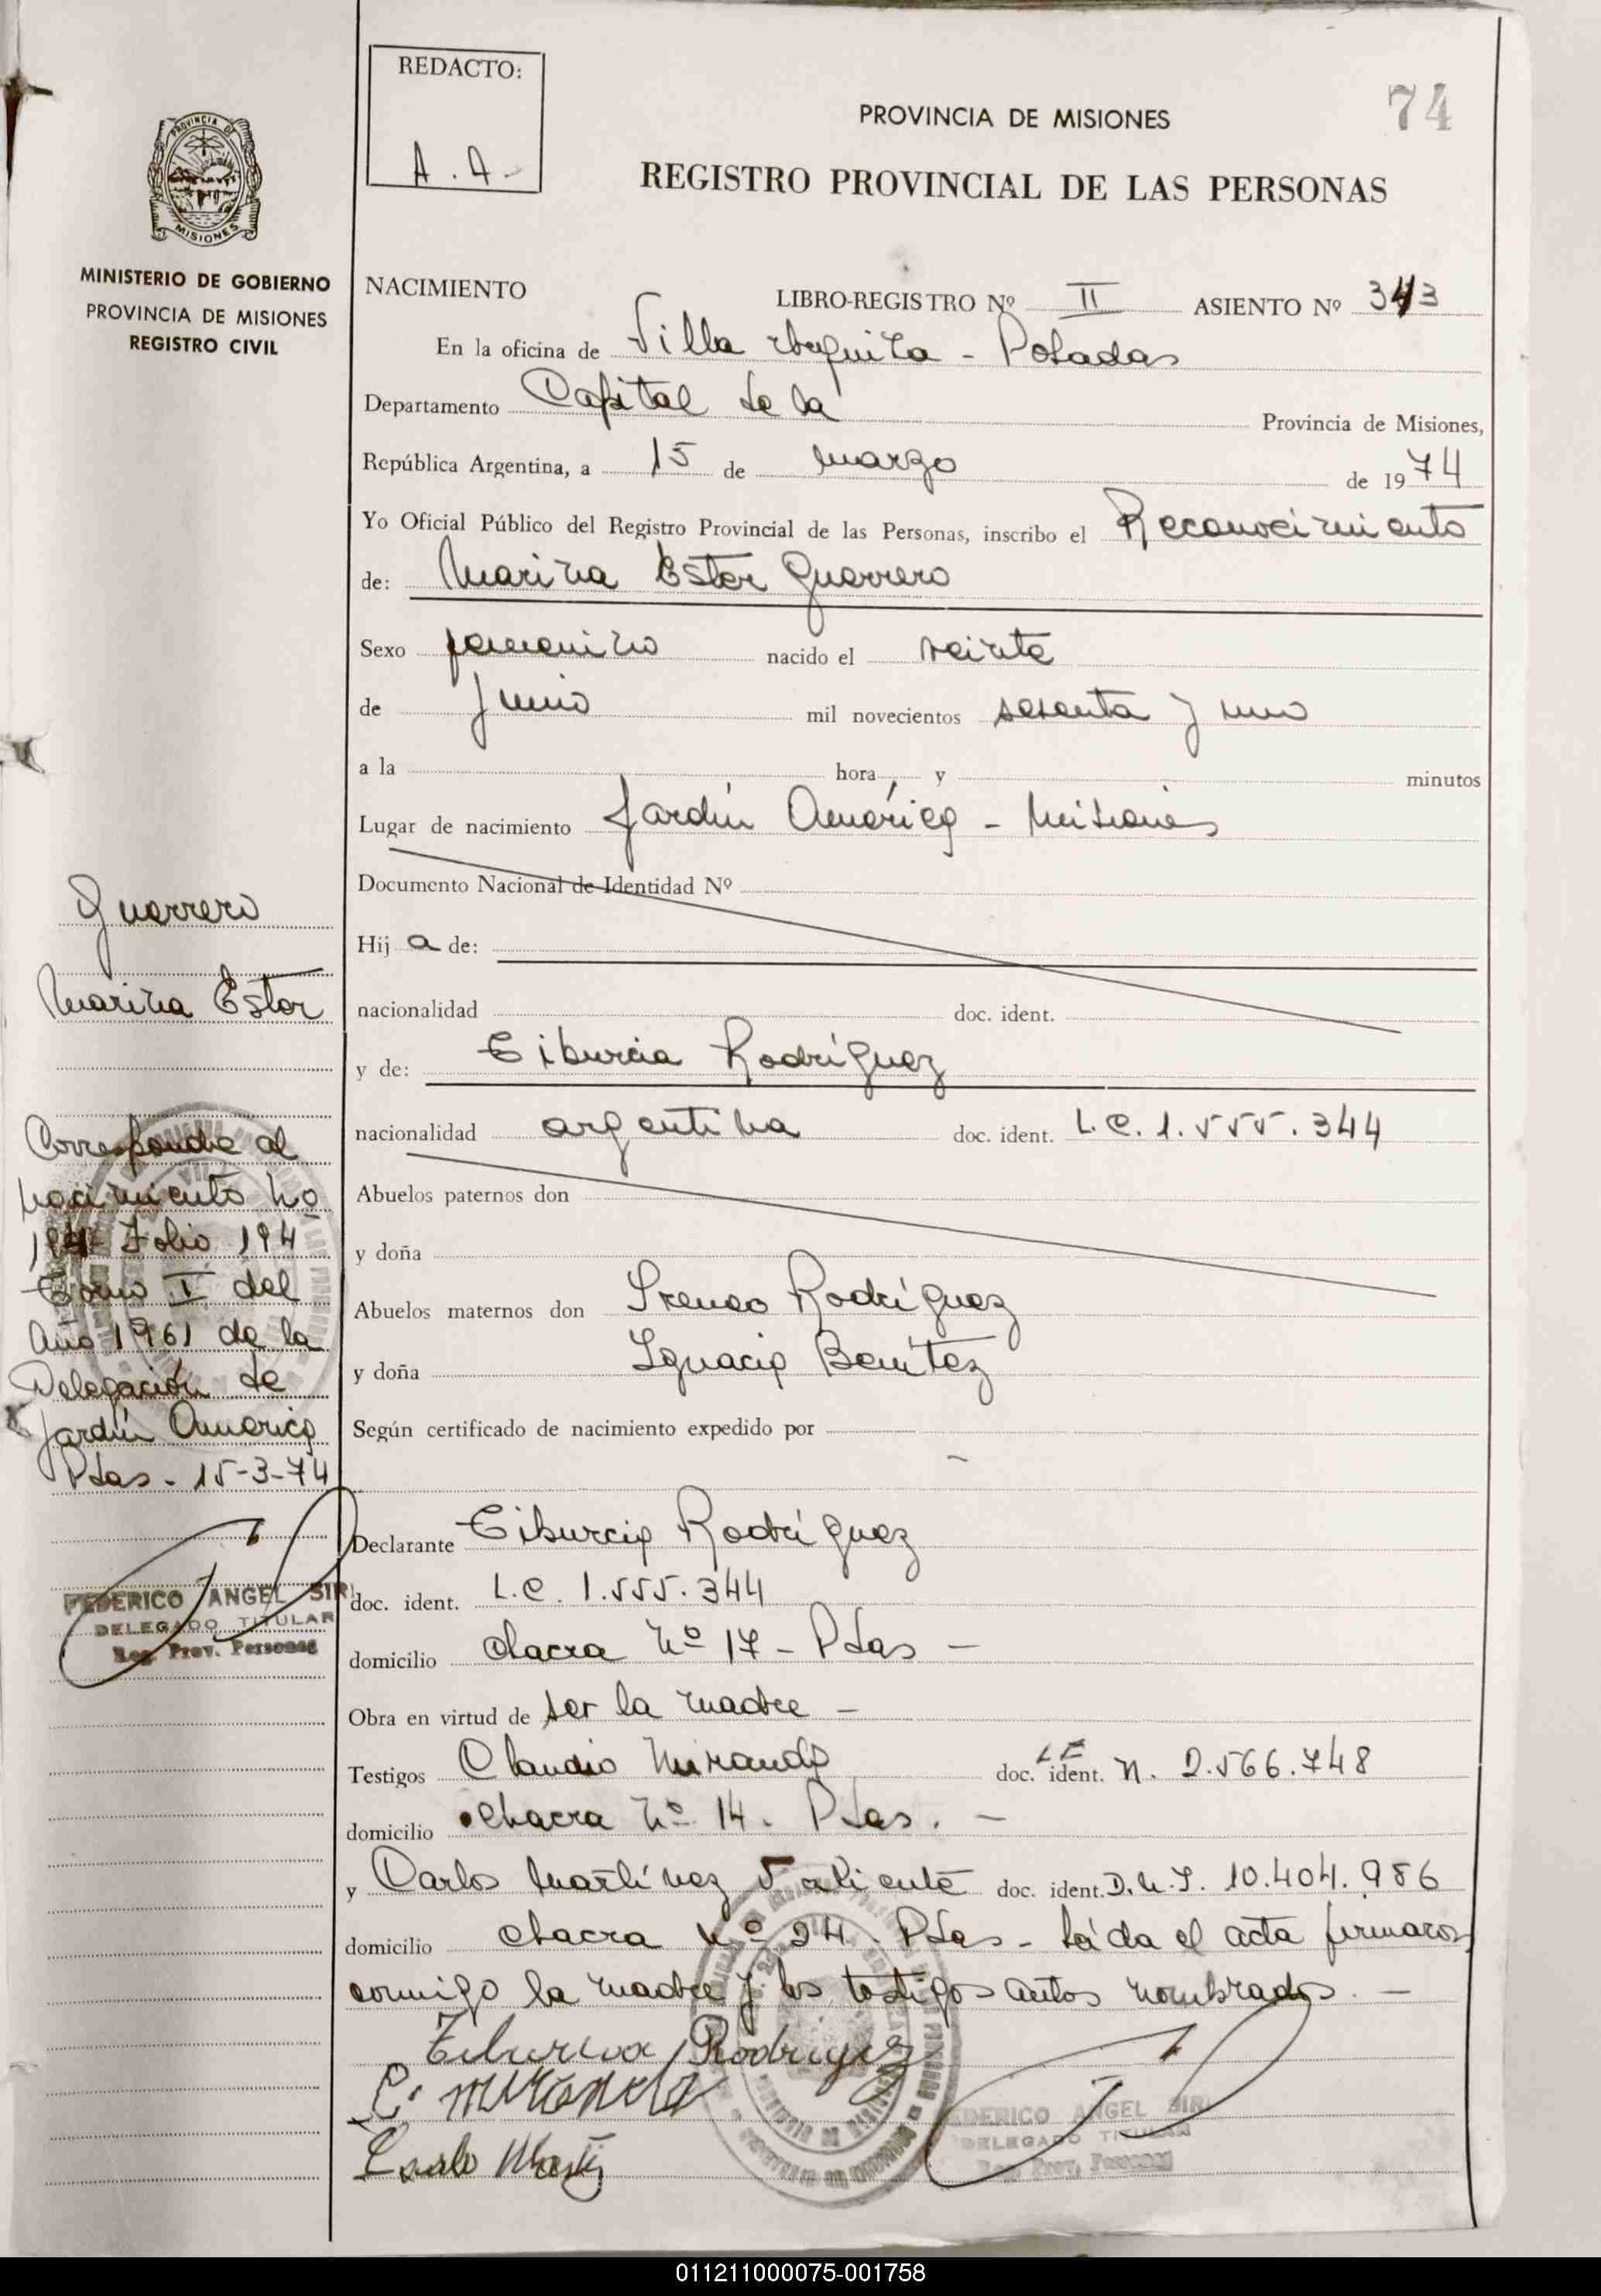 REDACTO:
A. A-
74
PROVINCIA DE MISIONES
REGISTRO PROVINCIAL DE LAS PERSONAS
PROVINCIA DE
MISIONES
MINISTERIO DE GOBIERNO
PROVINCIA DE MISIONES
REGISTRO CIVIL
NACIMIENTO LIBRO-REGISTRO Nº II ASIENTO Nº 343
En la oficina de Villa Urquiza - Posadas
Departamento Capital de la Provincia de Misiones,
República Argentina, a 15 de marzo de 1974
Yo Oficial Público del Registro Provincial de las Personas, inscribo el Reconocimiento
de: Marina Ester Guerrero
Sexo femenino nacido el veinte
de Junio mil novecientos sesenta y uno
a la hora y minutos
Lugar de nacimiento Jardín América - Misiones
Documento Nacional de Identidad Nº
Hij a de:
nacionalidad doc. ident.
y de: Tiburcia Rodríguez
nacionalidad argentina doc. ident. L.C. 1.555.344
Abuelos paternos don
y doña
Abuelos maternos don Ireneo Rodríguez
y doña Ignacia Benítez
Según certificado de nacimiento expedido por
Declarante Tiburcia Rodríguez
doc. ident. L.C. 1.555.344
domicilio chacra Nº 17 - Pdas -
Obra en virtud de ser la madre -
Testigos Claudio Miranda doc. ident. LE N. 2.566.748
domicilio chacra Nº 14. Pdas. -
y Carlos Martínez Valiente doc. ident. D.N.I. 10.404.986
domicilio chacra Nº 24. Pdas - Leída el acta firmaron
conmigo la madre y los testigos antes nombrados. -
Tiburcia Rodriguez
C. miranda
FEDERICO ANGEL SIRI
DELEGADO TITULAR
Reg. Prov. Personas
Guerrero
Marina Ester
Corresponde al
nacimiento no
194 Folio 194
Tomo I del
Año 1961 de la
Delegación de
Jardín América
Pdas - 15-3-74
FEDERICO ANGEL SIRI
DELEGADO TITULAR
Reg. Prov. Personas
011211000075-001758